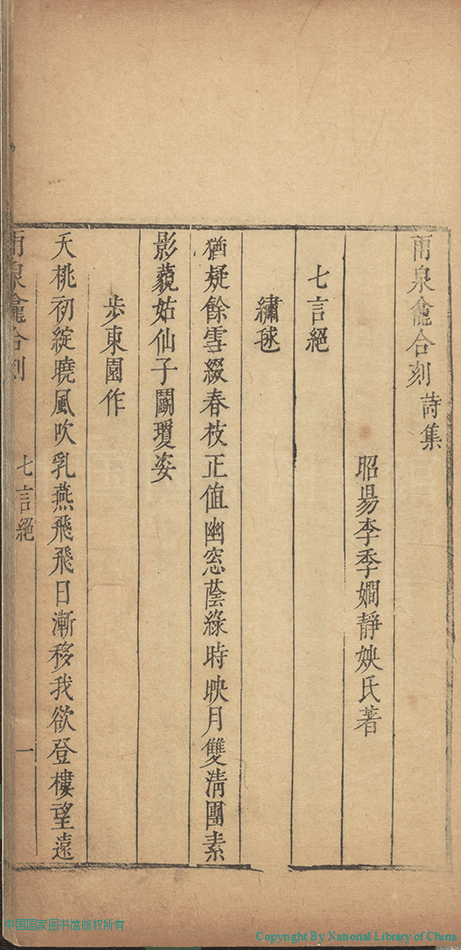 雨泉龕合刻 詩集
昭陽李季嫺靜姎氏著
七言絕
繡毬
猶疑餘雪綴春枝正值幽窓蔭綠時映月雙清團素
影藐姑仙子鬭瓊姿
步東園作
夭桃初綻曉風吹乳燕飛飛日漸移我欲登樓望遠
雨泉龕合刻 七言絕 一
中国国家图书馆版权所有
Copyright By National Library of China